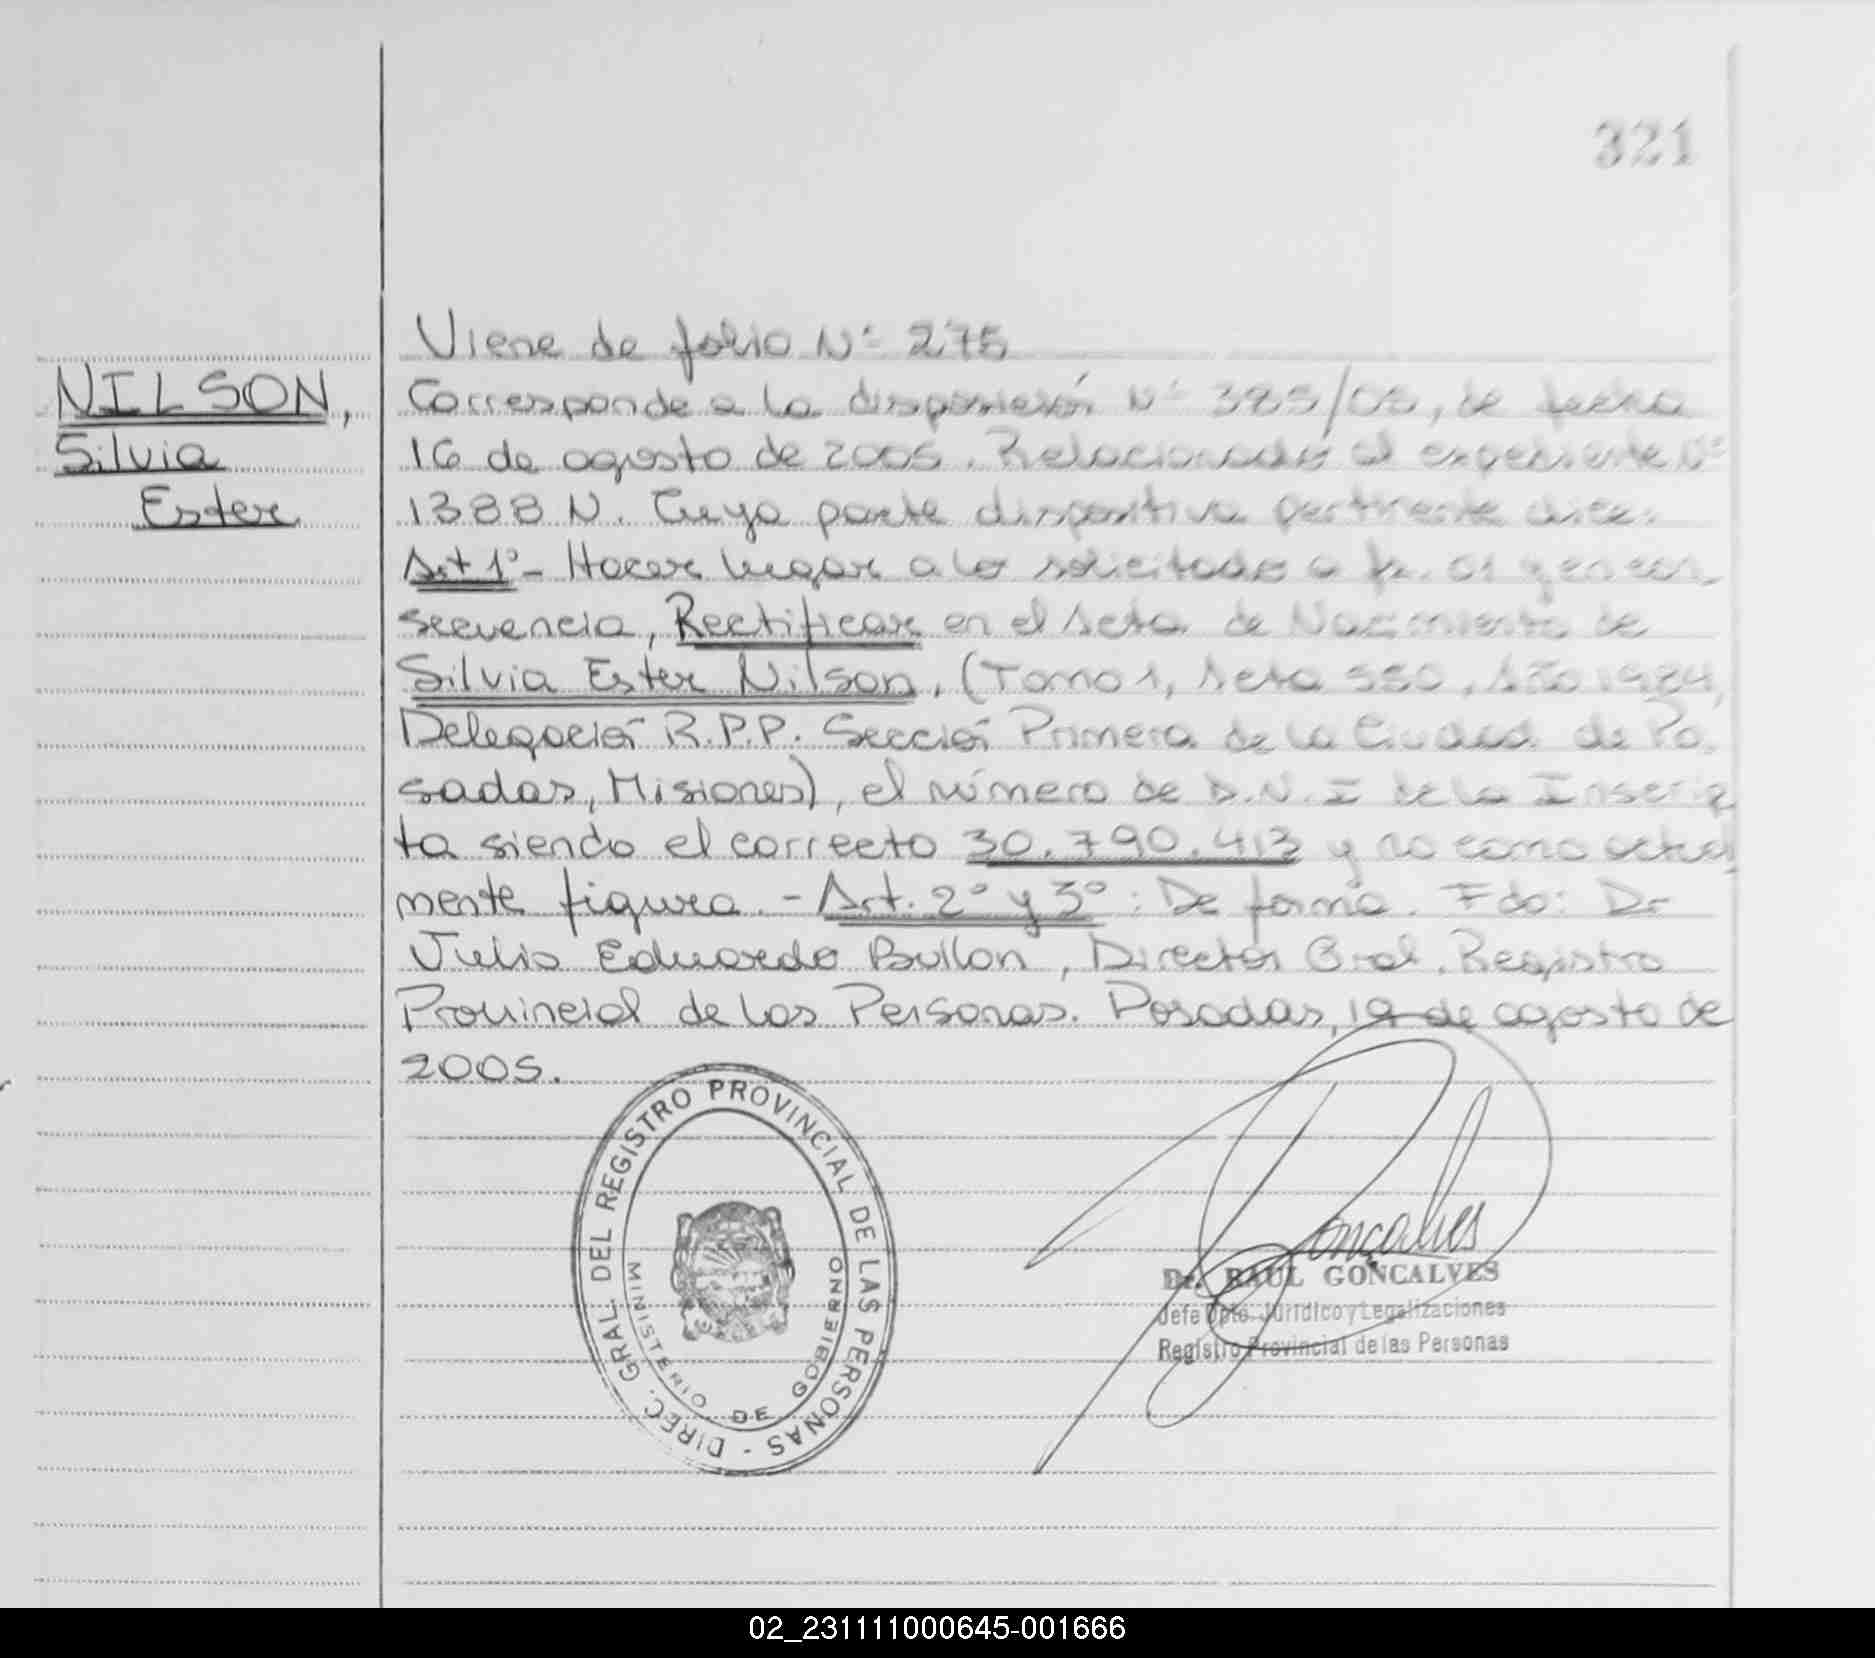 321
Viene de folio Nº 275
NILSON,
Silvia
Ester
Corresponde a la disposición Nº 385/05, de fecha
16 de agosto de 2005. Relacionado al expediente Nº
1388 N. Cuya parte dispositiva pertinente dice:
Art 1º- Hacer lugar a lo solicitado a fs. 01 y en con-
secuencia, Rectificar en el Acta de Nacimiento de
Silvia Ester Nilson, (Tomo 1, Acta 550, Año 1984,
Delegación R.P.P. Sección Primera de la Ciudad de Po-
sadas, Misiones), el número de D.N.I de la Inscrip
ta siendo el correcto 30.790.413 y no como actual
mente figura. - Art. 2º y 3º: De forma. Fdo: Dr
Julio Eduardo Bullon, Director Gral. Registro
Provincial de las Personas. Posadas, 19 de agosto de
2005.
DIREC. GRAL. DEL REGISTRO PROVINCIAL DE LAS PERSONAS -
MINISTERIO DE GOBIERNO
Goncalves
Dr. RAUL GONCALVES
Jefe Dpto. Jurídico y Legalizaciones
Registro Provincial de las Personas
02_231111000645-001666